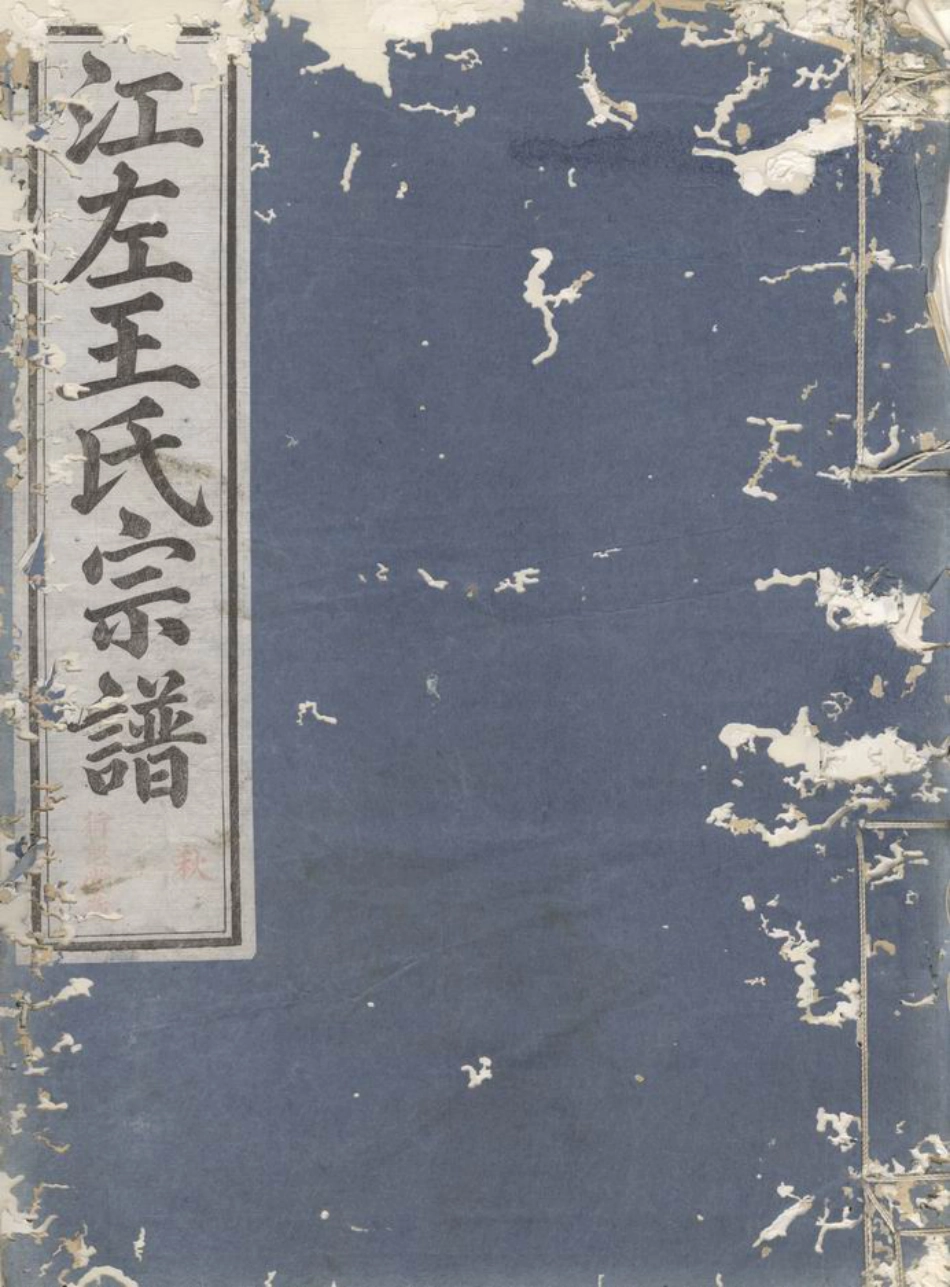 江左王氏宗譜
秋